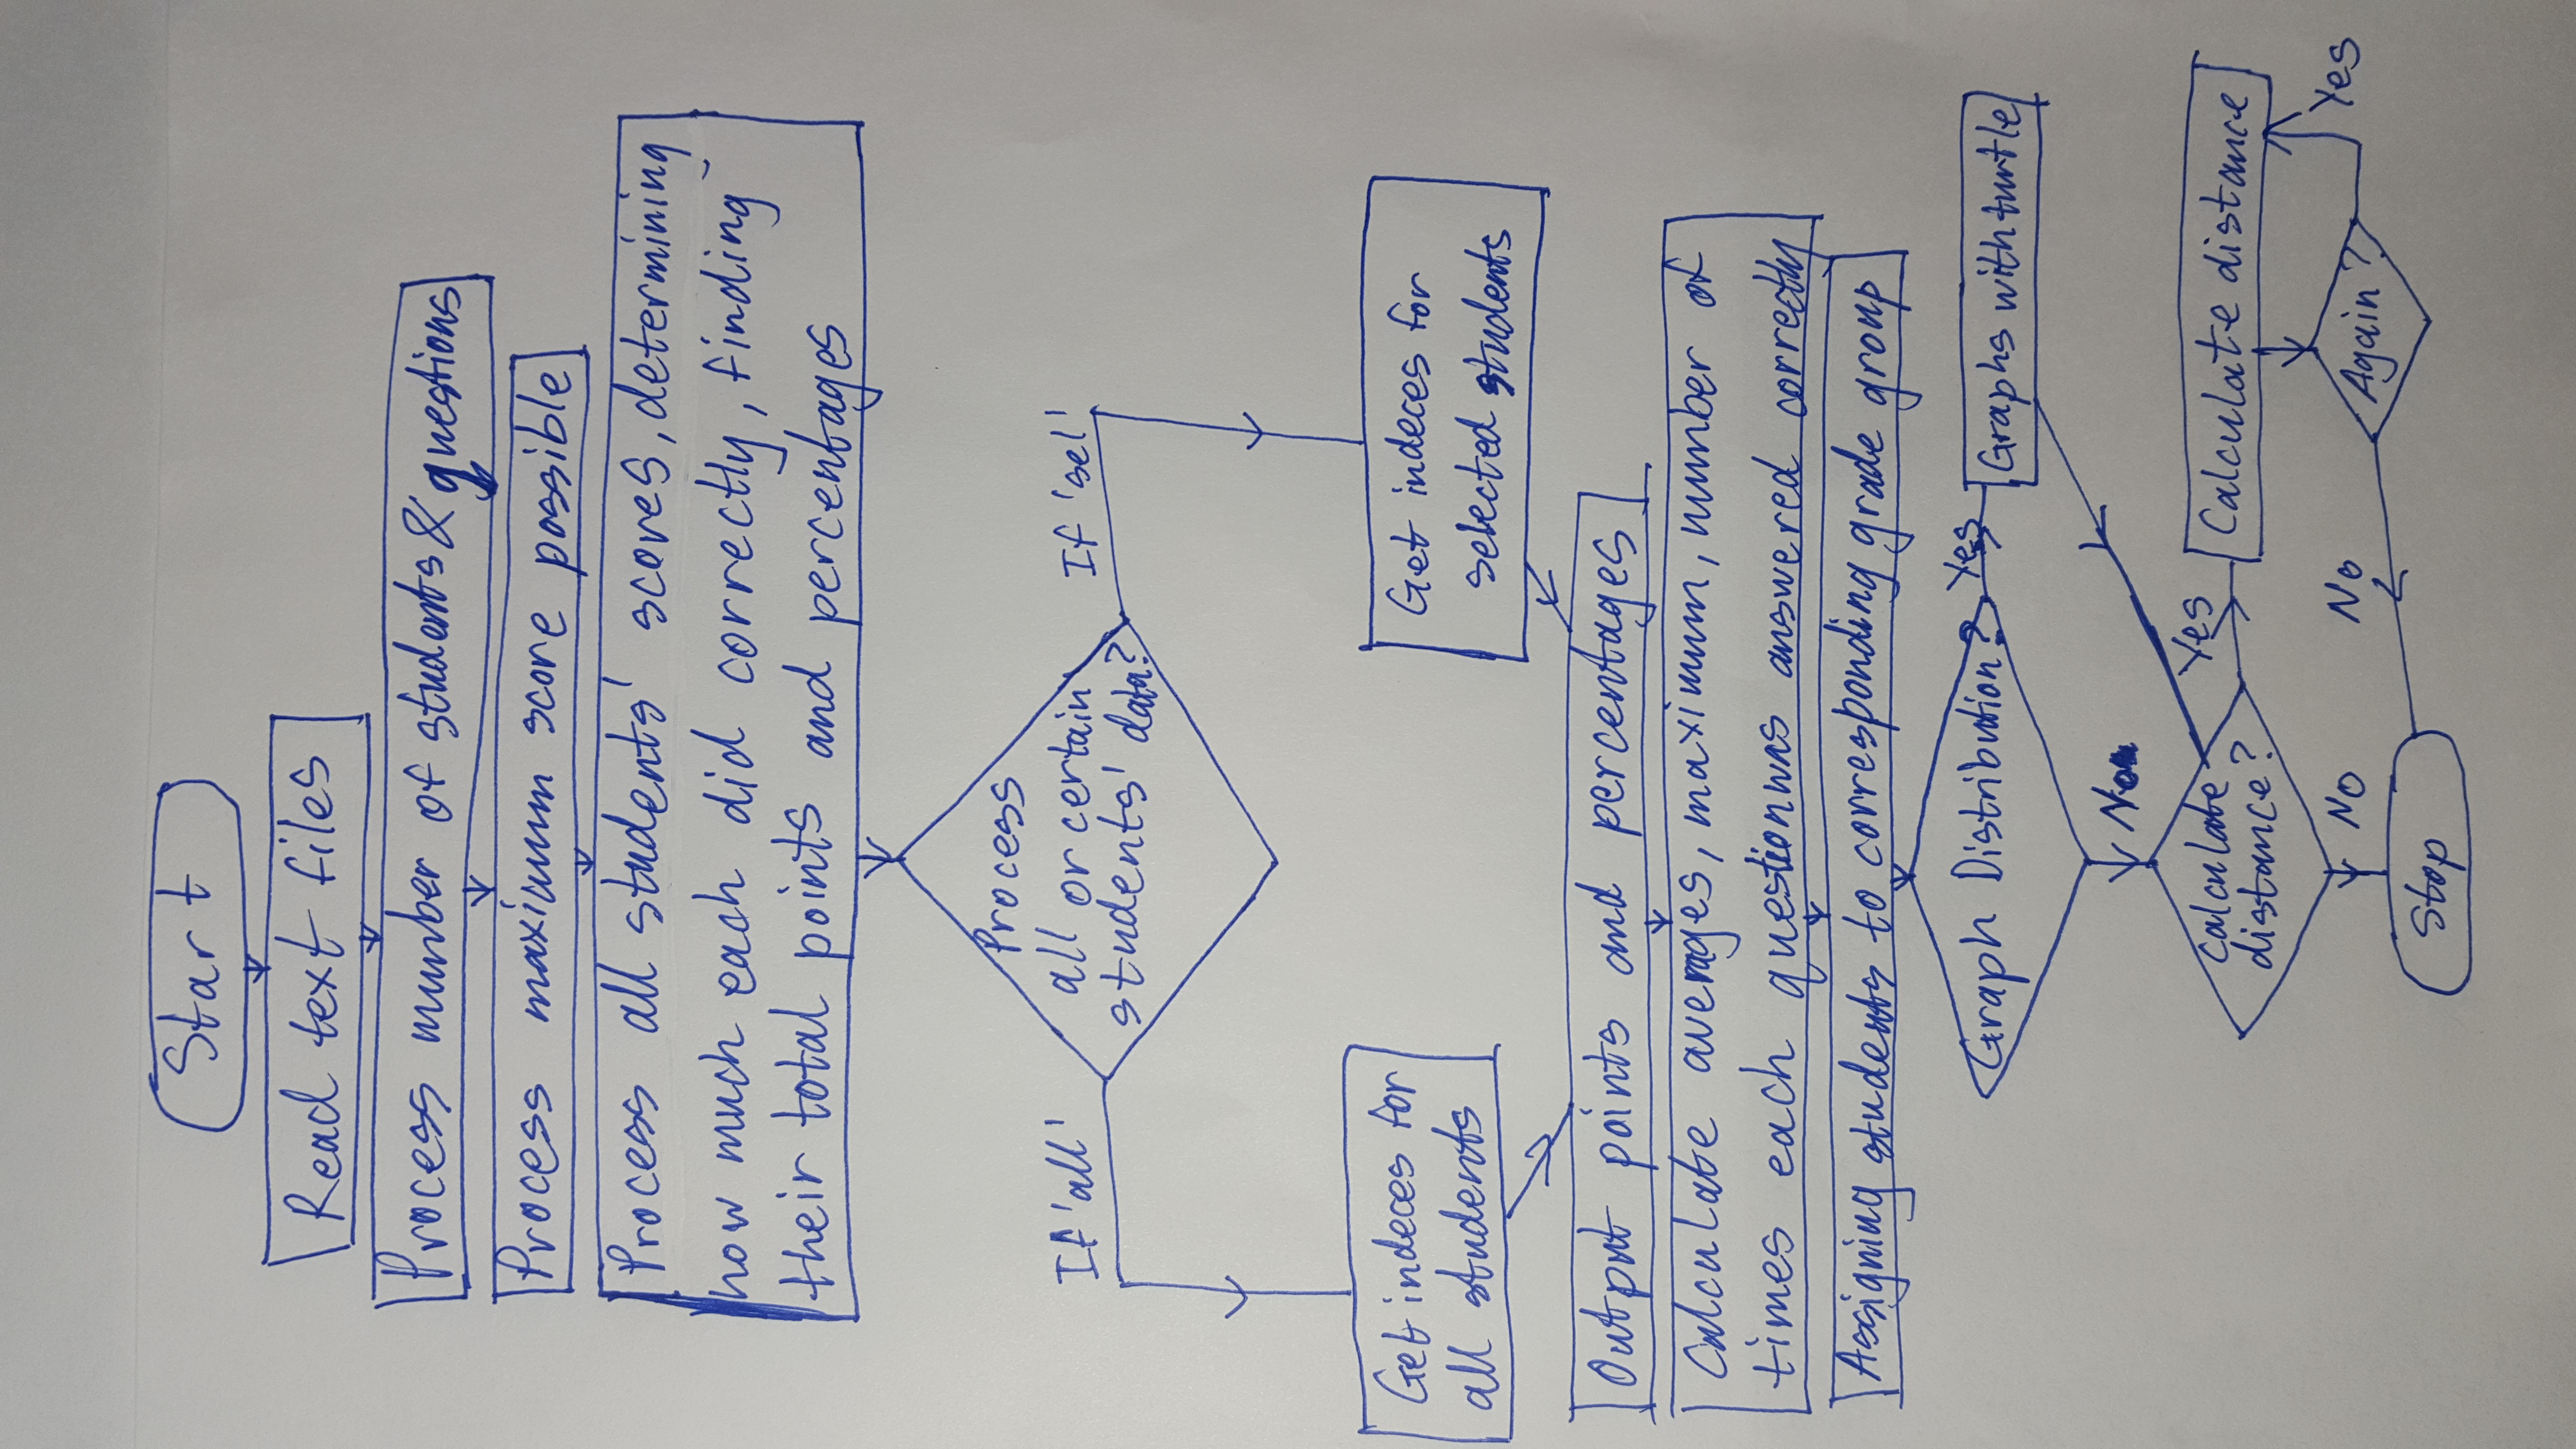 Start
Read text files
Process number of students & questions
Process maximum score possible
Process all students' scores, determining
how much each did correctly, finding
their total points and percentages
Process
all or certain
students' data?
If 'all'
If 'sel'
Get indeces for
all students
Get indeces for
selected students
Output points and percentages
Calculate averages, maximum, number of
times each question was answered correctly
Assigning students to corresponding grade group
Graph Distribution?
Yes
Graphs with turtle
No
Calculate
distance?
Yes
Calculate distance
No
No
Again?
Yes
Stop